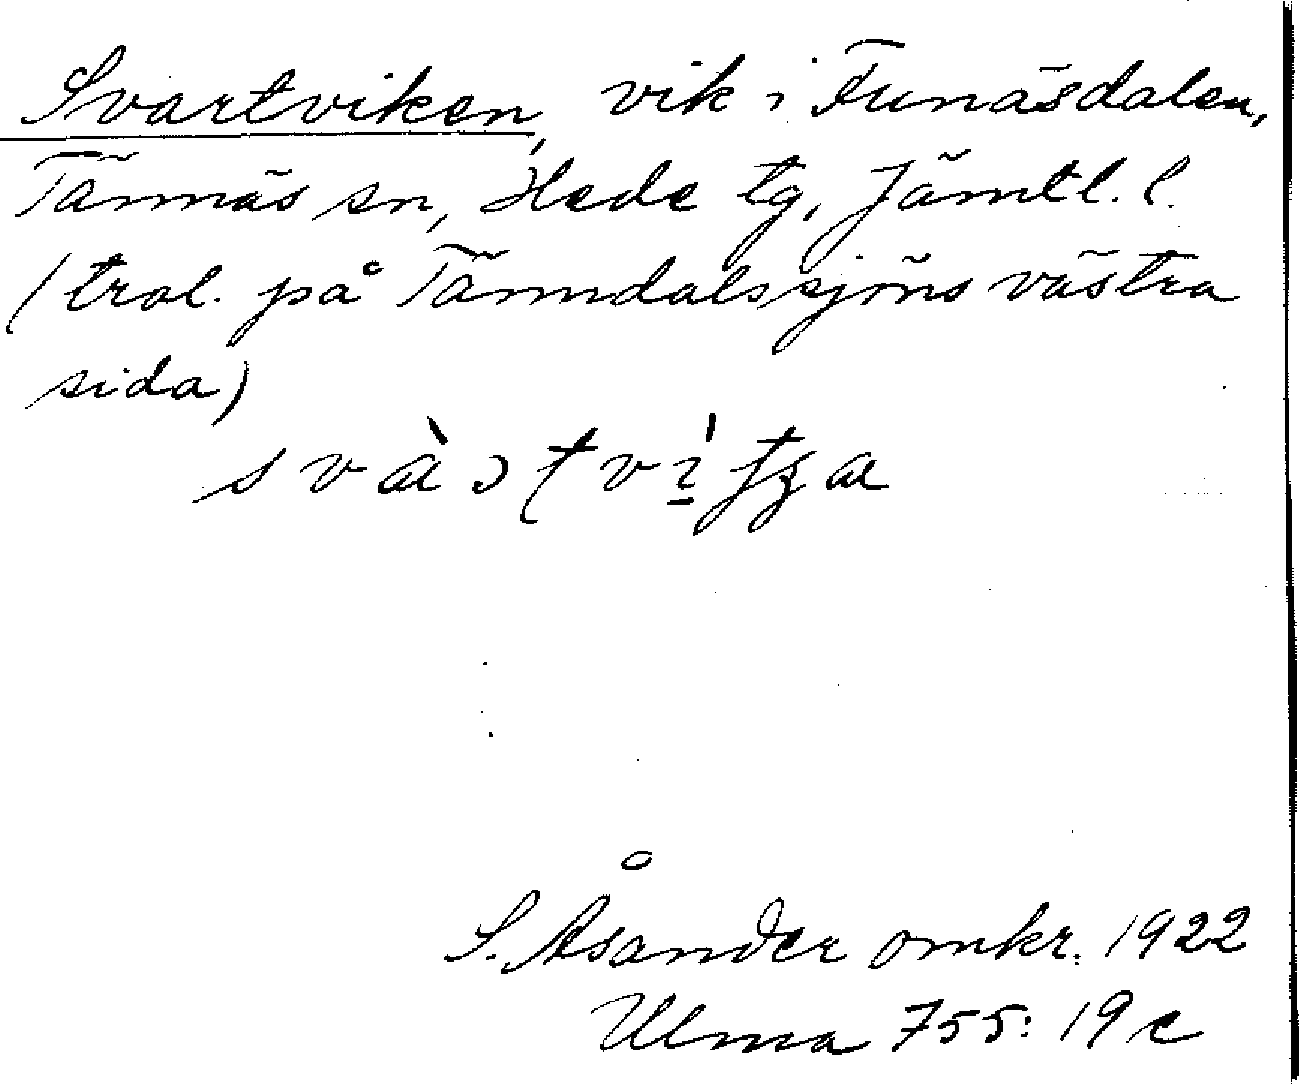 Svartviken, vik i Funäsdalen,
Tännäs sn, Hede tg, Jämtl. l.
(trol. på Tänndalssjöns västra
sida)
S. Åsander omkr. 1922
Ulma 755: 19 c